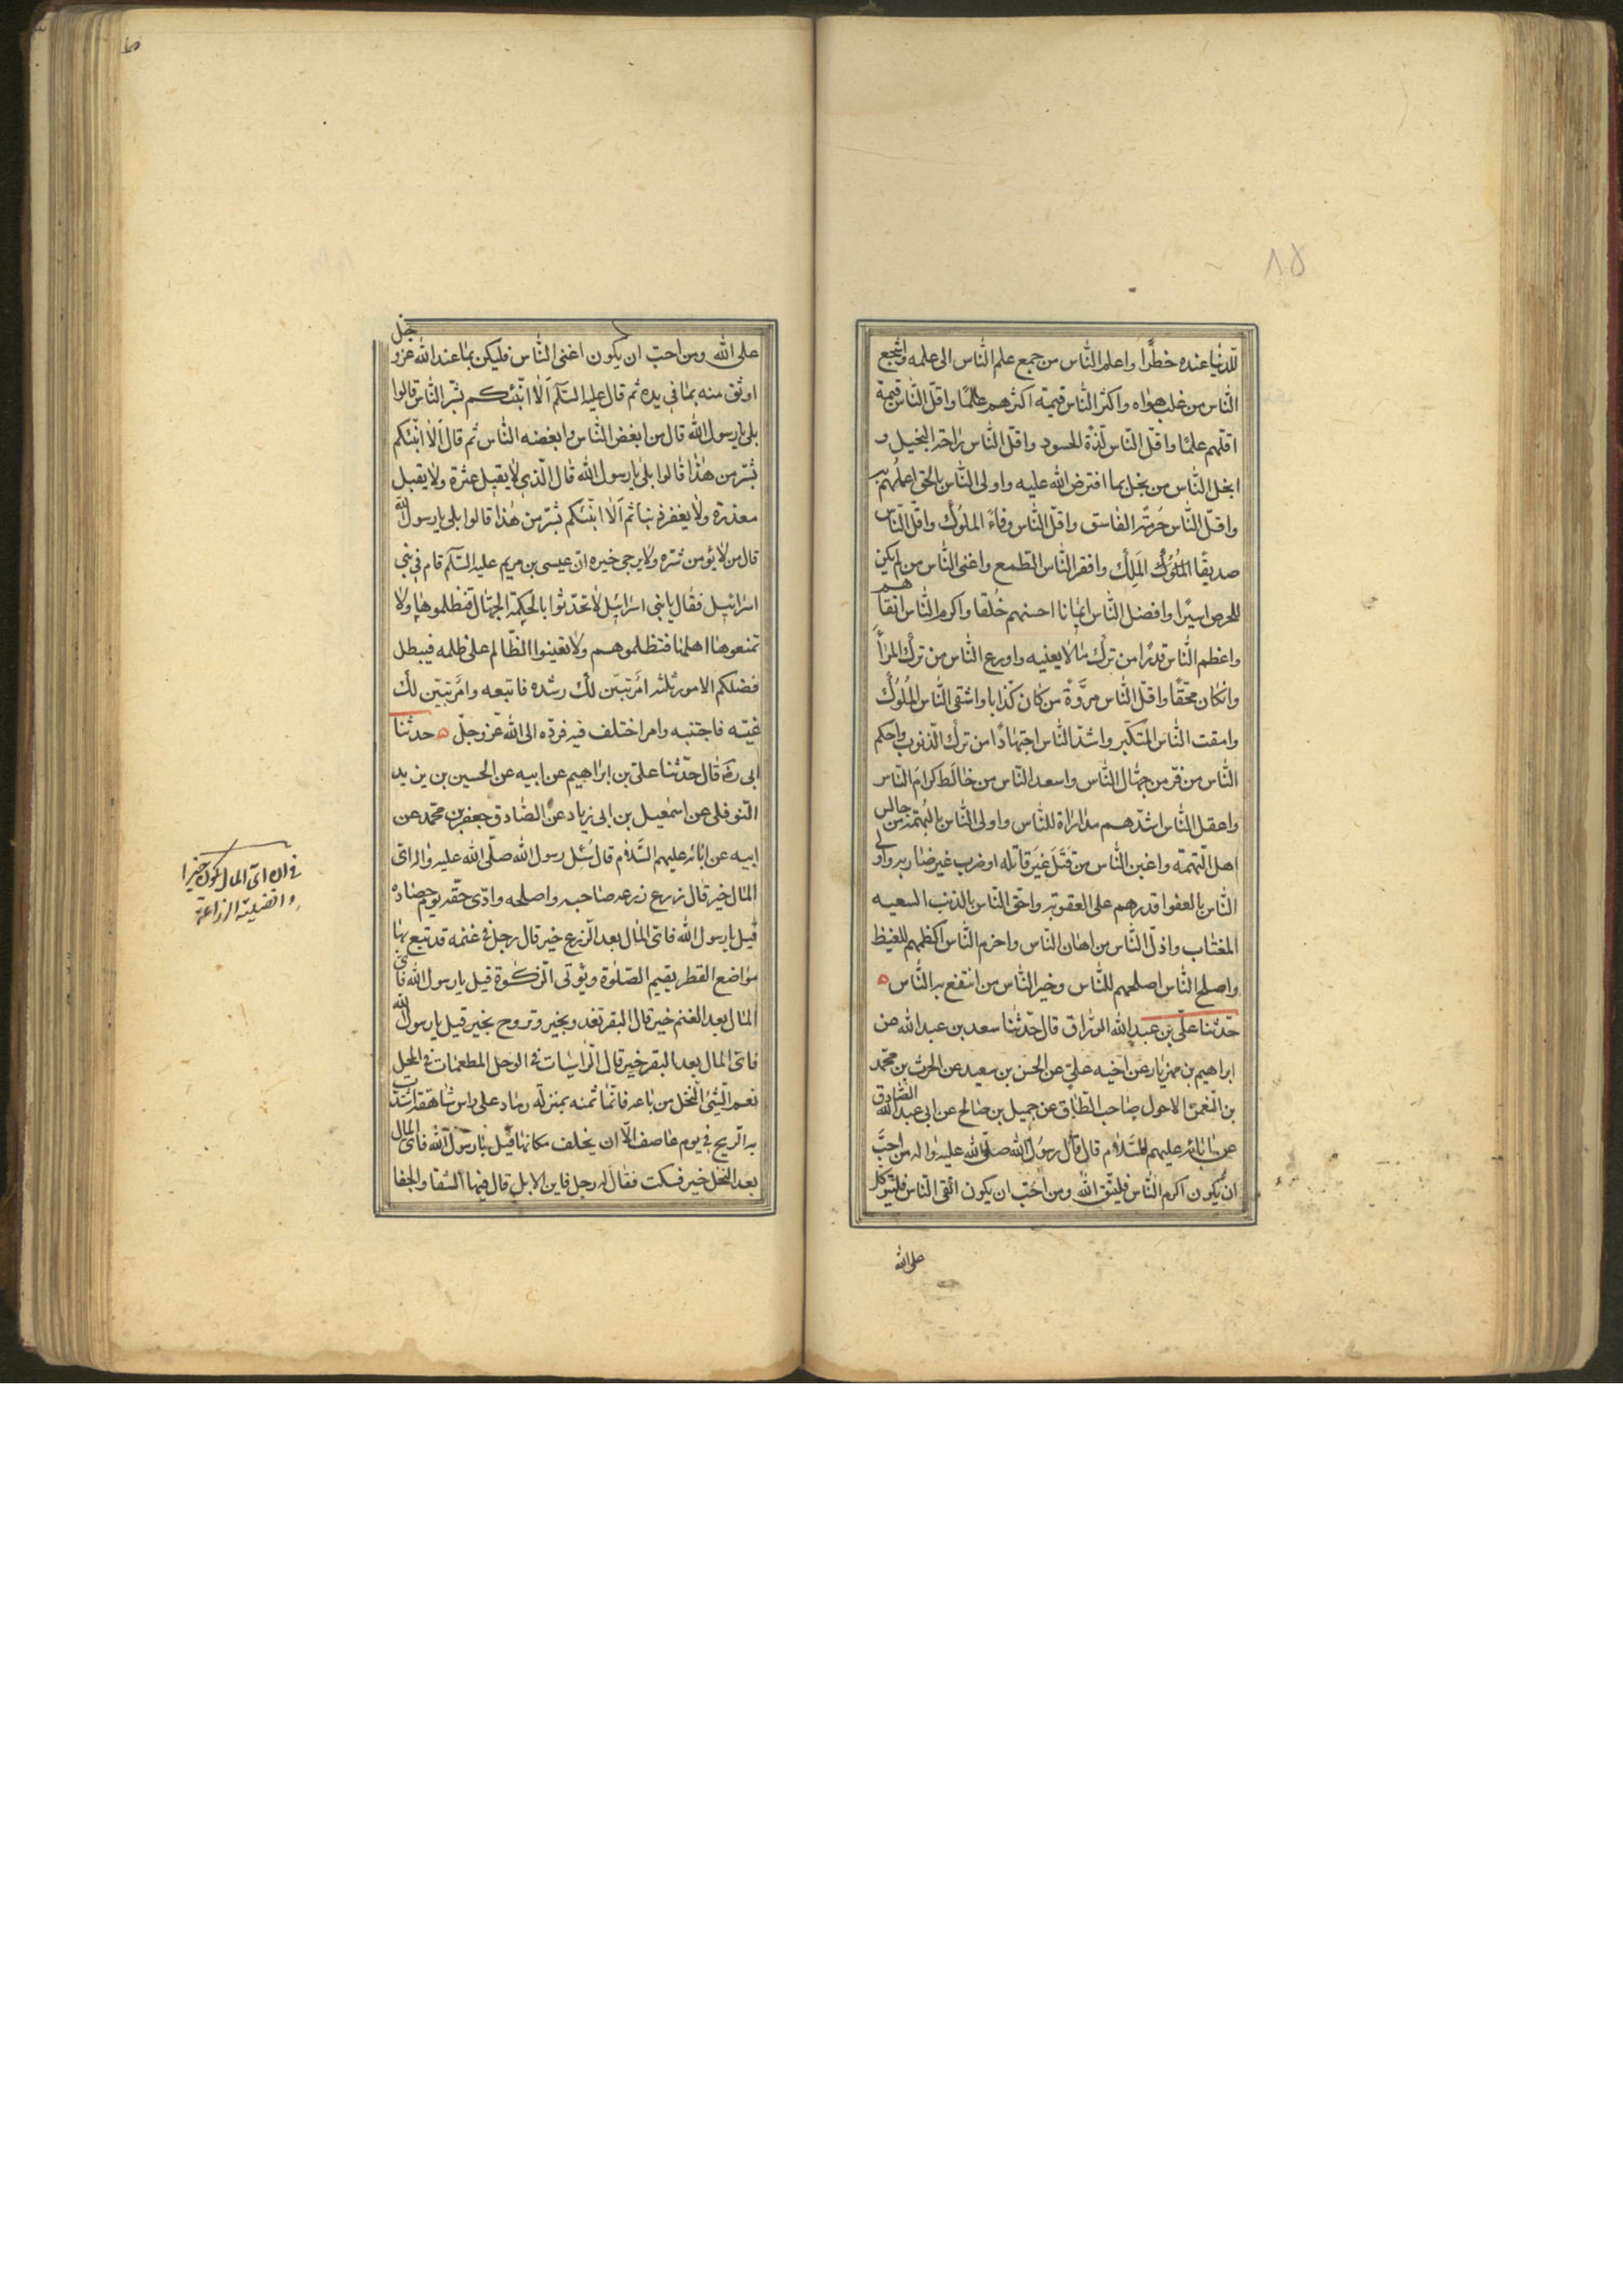 ٨٥
للدنيا عنده خطرا واعلم الناس من جمع علم الناس الى علمه واشجع
الناس من غلب هواه واكثر الناس قيمة اكثرهم علما واقل الناس قيمة
اقلهم علما واقل الناس لذة الحسود واقل الناس راحة البخيل و
ابخل الناس من بخل بما افترض الله عليه واولى الناس بالحق اعلمهم به
واقل الناس حرمة الفاسق واقل الناس وفاء الملوك واقل الناس
صديقا الملوك الملك وافقر الناس الطمع واغنى الناس من لم يكن
للحرص اسيرا وافضل الناس ايمانا احسنهم خلقا واكرم الناس اتقاهم
واعظم الناس قدرا من ترك مالا يعنيه واورع الناس من ترك المرآء
وانكان محقا واقل الناس مروة من كان كذابا واشقى الناس الملوك
وامقت الناس المتكبر واشد الناس اجتهادا من ترك الذنوب واحكم
الناس من فر من جهال الناس واسعد الناس من خالط كرام الناس
واعقل الناس اشدهم مداراة للناس واولى الناس بالتهمة من جالس
اهل التهمة واعتى الناس من قتل غير قاتله او ضرب غير ضاربه واولى
الناس بالعفوا قدرهم على العقوبة واحق الناس بالذنب السفيه
المغتاب واذل الناس من اهان الناس واحزم الناس اكظمهم للغيظ
واصلح الناس اصلحهم للناس وخير الناس من انتفع به الناس ه
حدثنا على بن عبد الله الوراق قال حدثنا سعد بن عبد الله عن
ابراهيم بن مهزيار عن اخيه على عن الحسن بن سعيد عن الحرث بن محمد
بن النعمن الاحول صاحب الطاق عن جميل بن صالح عن ابى عبد الله الصادق
عن ابائه عليهم السلام قال قال رسول الله صلى الله عليه واله من احب
ان يكون اكرم الناس فليتق الله ومن احب ان يكون اتقى الناس فليتوكل
على الله
على الله ومن احب ان يكون اغنى الناس فليكن بما عند الله عز و جل
اوثق منه بما فى يده ثم قال عليه السلم الا انبئكم بشر الناس قالوا
بلى يا رسول الله قال من ابغض الناس وابغضه الناس ثم قال الا انبئكم
بشر من هذا قالوا بلى يا رسول الله قال الذى لا يقيل عثرة ولا يقبل
معذرة ولا يغفر ذنبا ثم الا انبئكم بشر من هذا قالوا بلى يا رسول الله
قال من لا يؤمن شره ولا يرجى خيره ان عيسى بن مريم عليه السلم قام فى بنى
اسرائيل فقال يا بنى اسرائيل لا تحدثوا بالحكمة الجهال فتظلموها ولا
تمنعوها اهلها فتظلموهم ولا تعينوا الظالم على ظلمه فيبطل
فضلكم الامور ثلثه امر تبين لك رشده فاتبعه وامر تبين لك
غيه فاجتنبه وامر اختلف فيه فرده الى الله عز وجل ه حدثنا
ابى ره قال حدثنا على بن ابراهيم عن ابيه عن الحسين بن يزيد
النوفلى عن اسمعيل بن ابى زياد عن الصادق جعفر بن محمد عن
ابيه عن ابائه عليهم السلام قال سئل رسول الله صلى الله عليه واله اى
المال خير قال زرع زرعه صاحبه واصلحه وادى حقه يوم حصاده
قيل يا رسول الله فاى المال بعد الزرع خير قال رجل فى غنمه قد تبع بها
مواضع القطر يقيم الصلوة ويؤتى الزكوة قيل يا رسول الله فاى
المال بعد الغنم خير قال البقر تغدو بخير وتروح بخير قيل يا رسول الله
فاى المال بعد البقر خير قال الراسيات فى الوحل المطعمات فى المحل
نعم الشئ النخل من باعه فانما ثمنه بمنزلة رماد على راس شاهقة اشتدت
به الريح فى يوم عاصف الا ان يخلف مكانها قيل يا رسول الله فاى المال
بعد النخل خير فسكت فقال له رجل فاين الابل قال فيها الشقا والجفا
فى ان اى المال يكون خيرا
وافضلية الزراعة